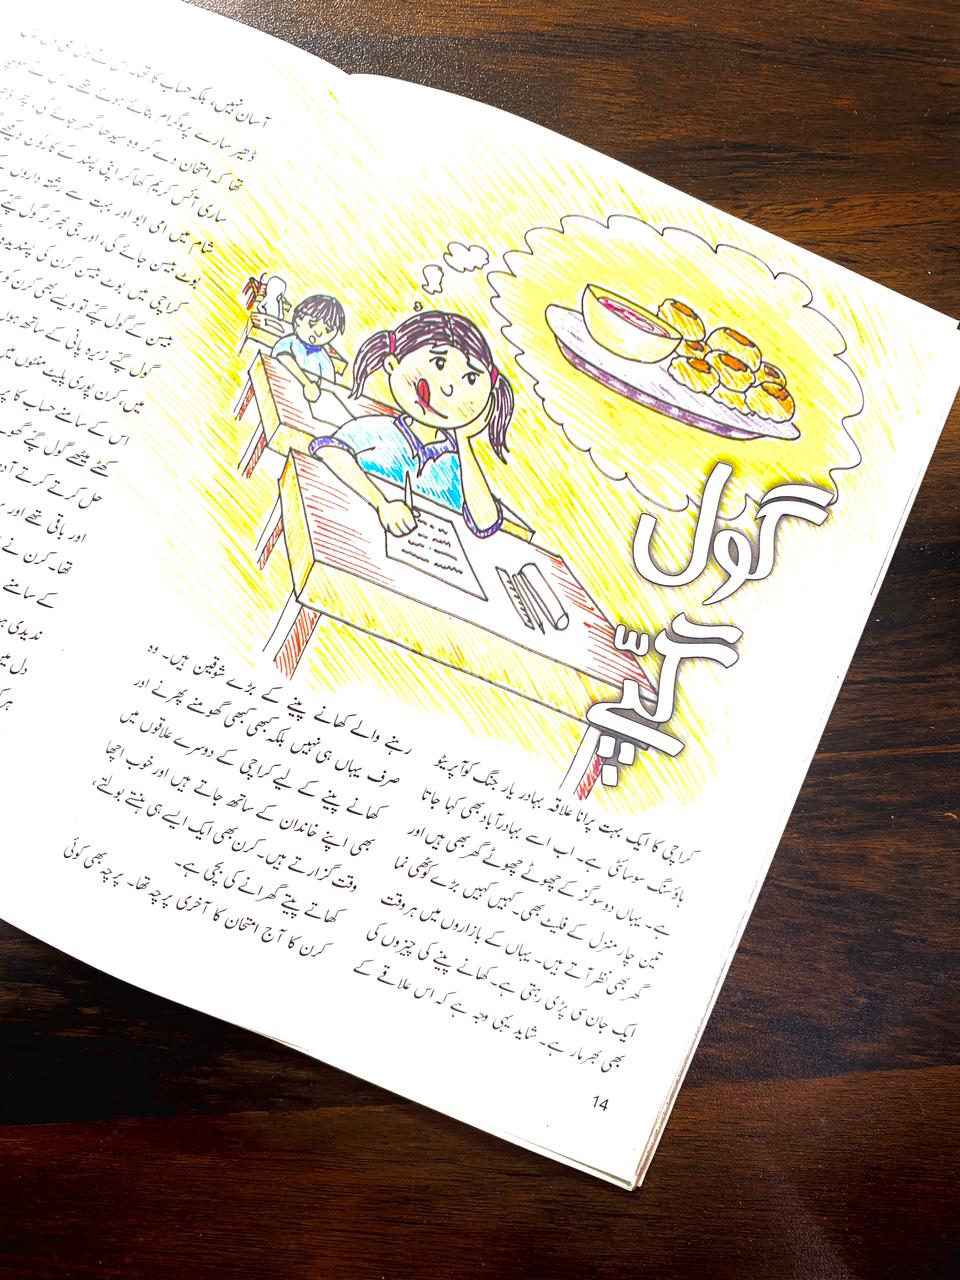 گول
گپّے
کراچی کا ایک بہت پرانا علاقہ بہادر یار جنگ کوآپریٹو
ہاؤسنگ سوسائٹی ہے۔ اب اسے بہادرآباد بھی کہا جاتا
ہے۔ یہاں دو سو گز کے چھوٹے چھوٹے گھر بھی ہیں اور
تین چار منزل کے فلیٹ بھی۔ کہیں کہیں بڑے کوٹھی نما
گھر بھی نظر آتے ہیں۔ یہاں کے بازاروں میں ہر وقت
ایک جان سی پڑی رہتی ہے۔ کھانے پینے کی چیزوں کی
بھی بھرمار ہے۔ شاید یہی وجہ ہے کہ اس علاقے کے
رہنے والے کھانے پینے کے بڑے شوقین ہیں۔ وہ
صرف یہاں ہی نہیں بلکہ کبھی کبھی گھومنے پھرنے اور
کھانے پینے کے لیے کراچی کے دوسرے علاقوں میں
بھی اپنے خاندان کے ساتھ جاتے ہیں اور خوب اچھا
وقت گزارتے ہیں۔ کرن بھی ایک ایسے ہی ہنستے بولتے،
کھاتے پیتے گھرانے کی بچی ہے۔
کرن کا آج امتحان کا آخری پرچہ تھا۔ پرچہ بھی کوئی
14
آسان نہیں، بلکہ حساب کا تھا۔ اس نے دل ہی دل میں
ڈھیر سارے پروگرام بنائے ہوئے تھے۔ اس نے سوچا
تھا کہ امتحان دے کر وہ سیدھا گھر جائے گی، پھر
ساری آئس کریم کھا کر اپنی پسند کے کارٹون دیکھے
شام میں امی ابو اور بہت سے رشتہ داروں کے
بوٹ بیسن جائے گی، اور جی بھر کر گول گپے
کراچی میں بوٹ بیسن کرن کی پسندیدہ
بیسن کے گول گپے تو ویسے بھی کرن کو
گول گپے زیرہ پانی کے ساتھ ہوں
میں، کرن پوری پلیٹ منٹوں میں
اس کے سامنے حساب کا پر
کھٹے میٹھے گول گپے گھو
حل کرتے کرتے آد
اور باقی تھے اور
تھا۔ کرن نے
کے سامنے
ندیدی
دل میں